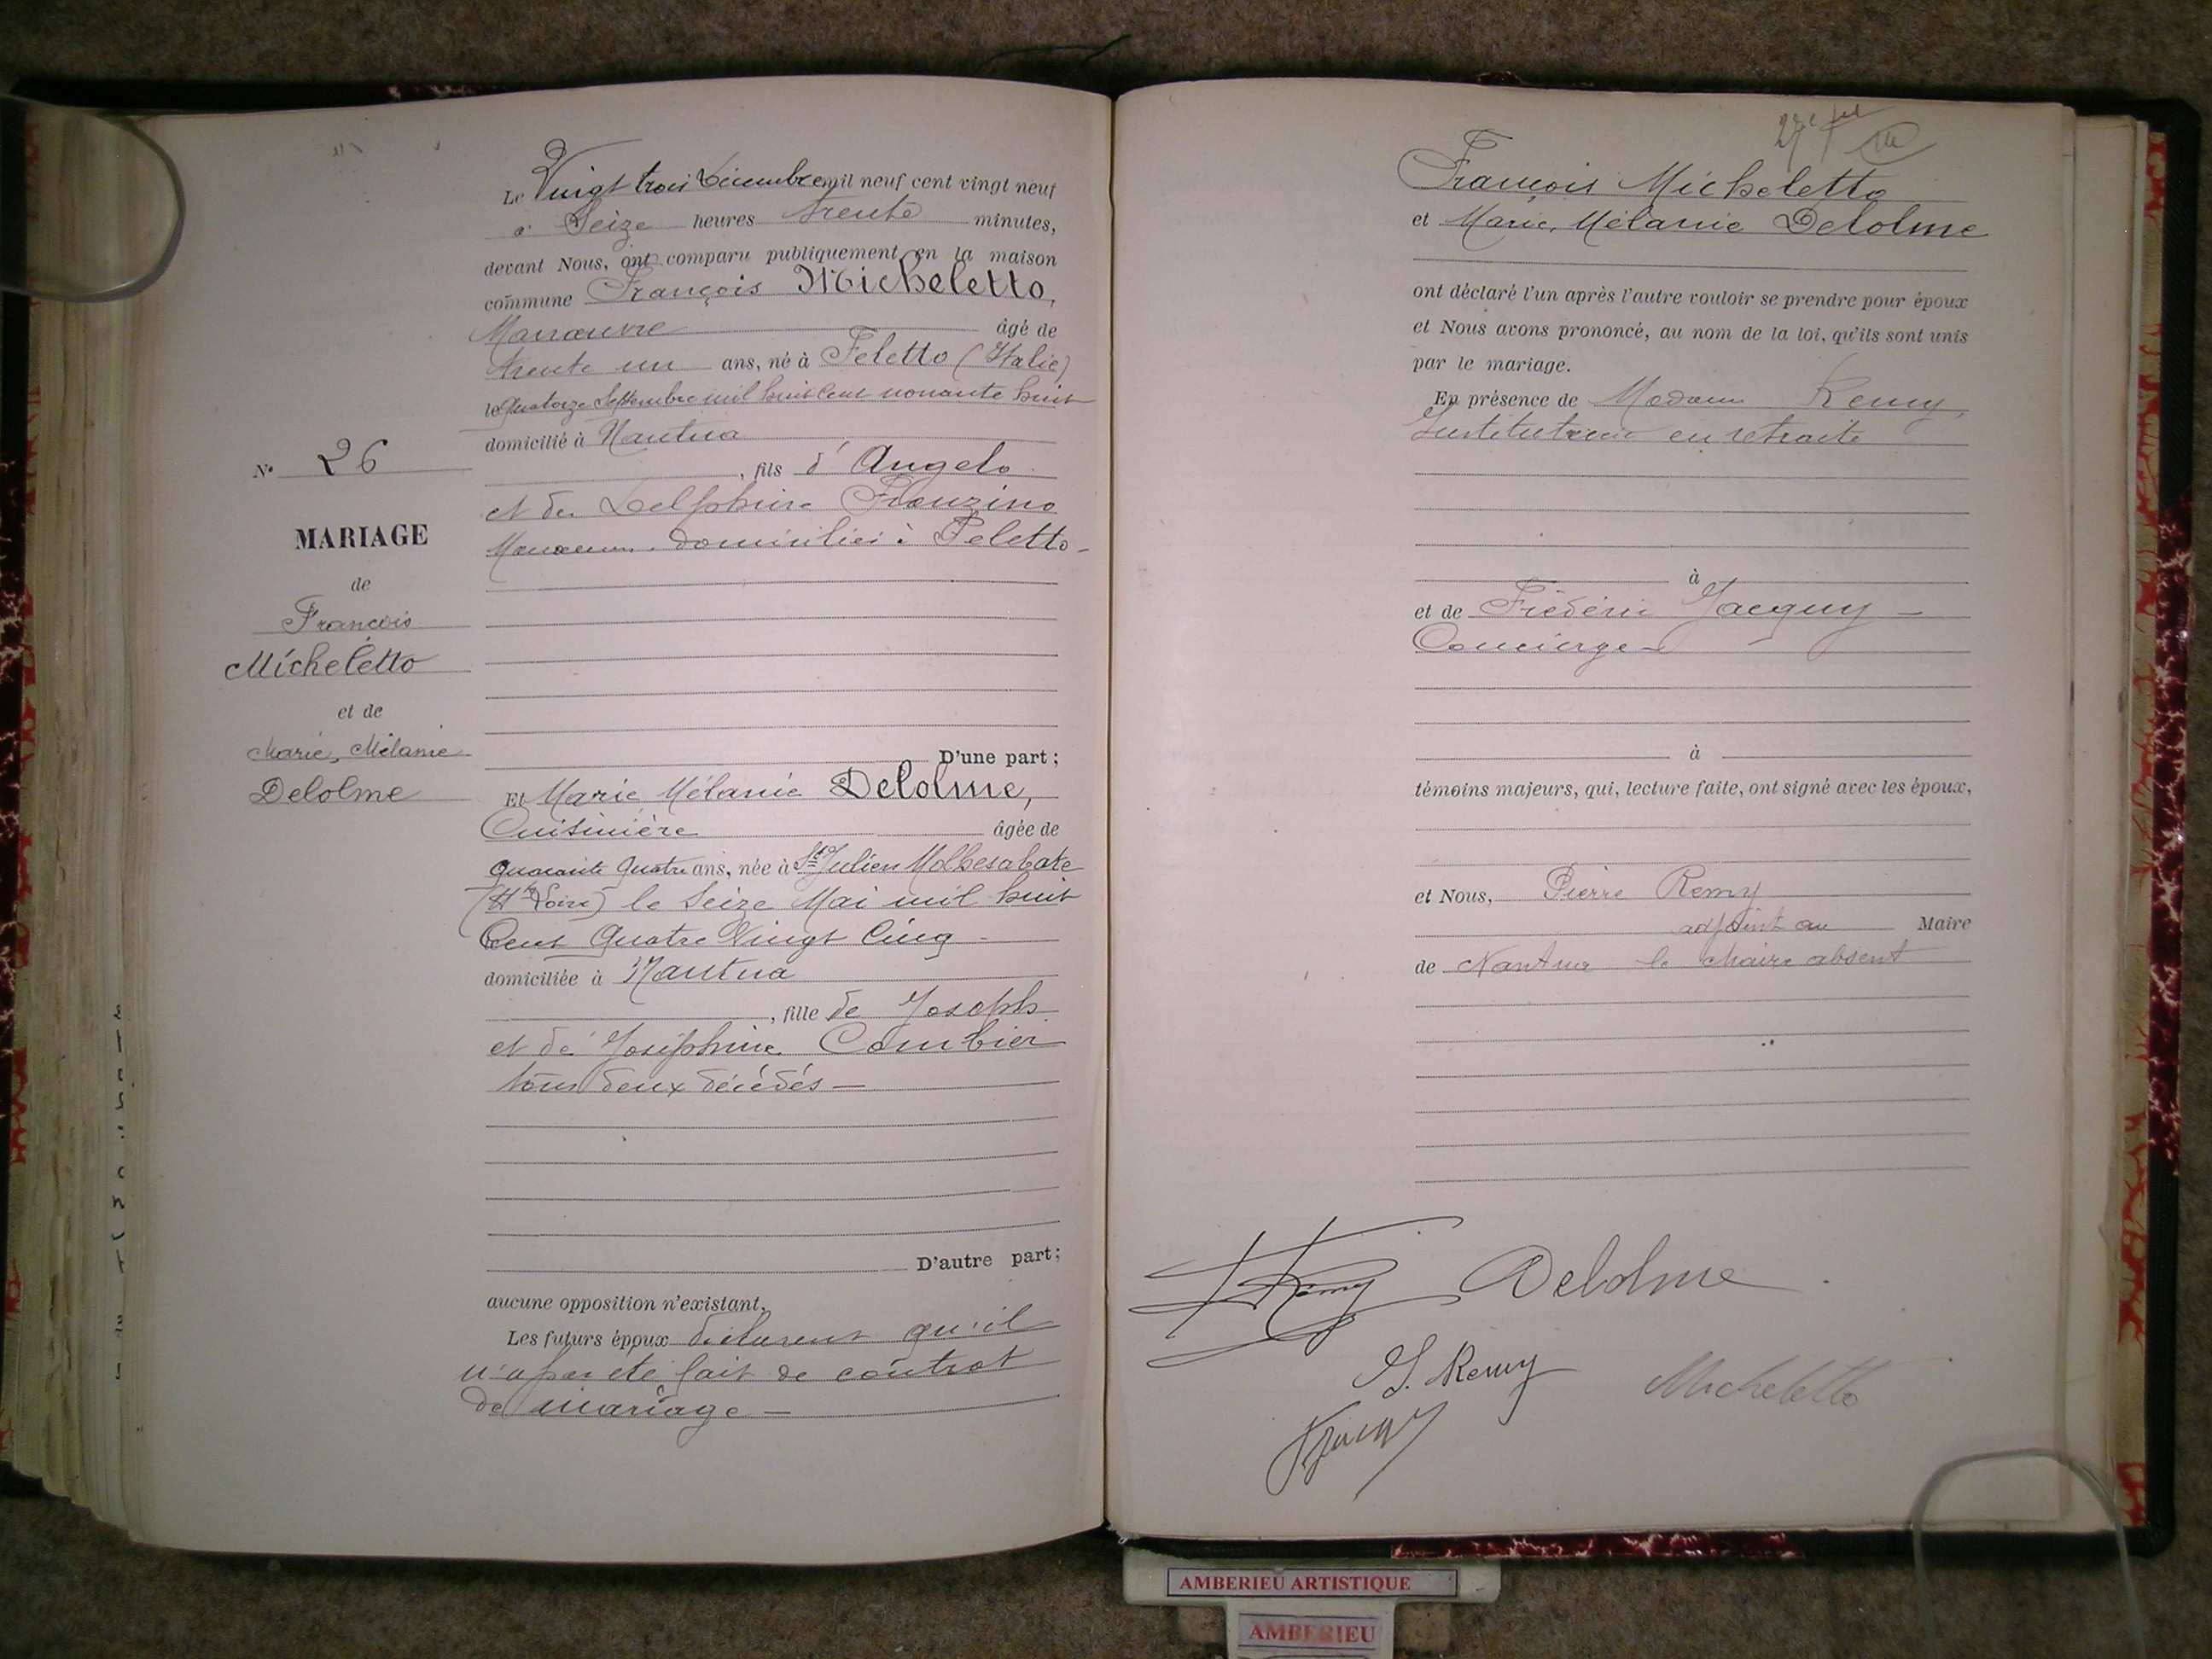 Le Vingt trois Décembre mil neuf cent vingt neuf
à Seize heures trente minutes,
devant Nous, ont comparu publiquement en la maison
commune François Micheletto,
Manœuvre âgé de
trente un ans, né à Feletto (Italie)
le quatorze Septembre mil huit cent nonante huit
domicilié à Nantua
, fils d'Angelo
et de Delphine
domiciliés à Feletto -
D'une part;
N° 26
MARIAGE
de
François
Micheletto
et de
Marie, Mélanie
Delolme
Et Marie Mélanie Delolme,
Cuisinière âgée de
quarante quatre ans, née à St Julien Molhesabate
(Hte Loire) le Seize Mai mil huit
Cent Quatre Vingt Cinq -
domiciliée à Nantua
, fille de Joseph
et de Joséphine Combier
tous deux décédés -
D'autre part;
aucune opposition n'existant.
Les futurs époux déclarent qu'il
n'a pas été fait de contrat
de mariage -
François Micheletto
et Marie, Mélanie Delolme
ont déclaré l'un après l'autre vouloir se prendre pour époux
et Nous avons prononcé, au nom de la loi, qu'ils sont unis
par le mariage.
En présence de Madame Remy,
Institutrice en retraite
à
et de Frédéric Jacquy -
Concierge -
à
témoins majeurs, qui, lecture faite, ont signé avec les époux,
et Nous, Pierre Remy
adjoint au Maire
de Nantua le Maire absent
Remy Delolme
J. Remy Micheletto
AMBERIEU ARTISTIQUE
AMBERIEU